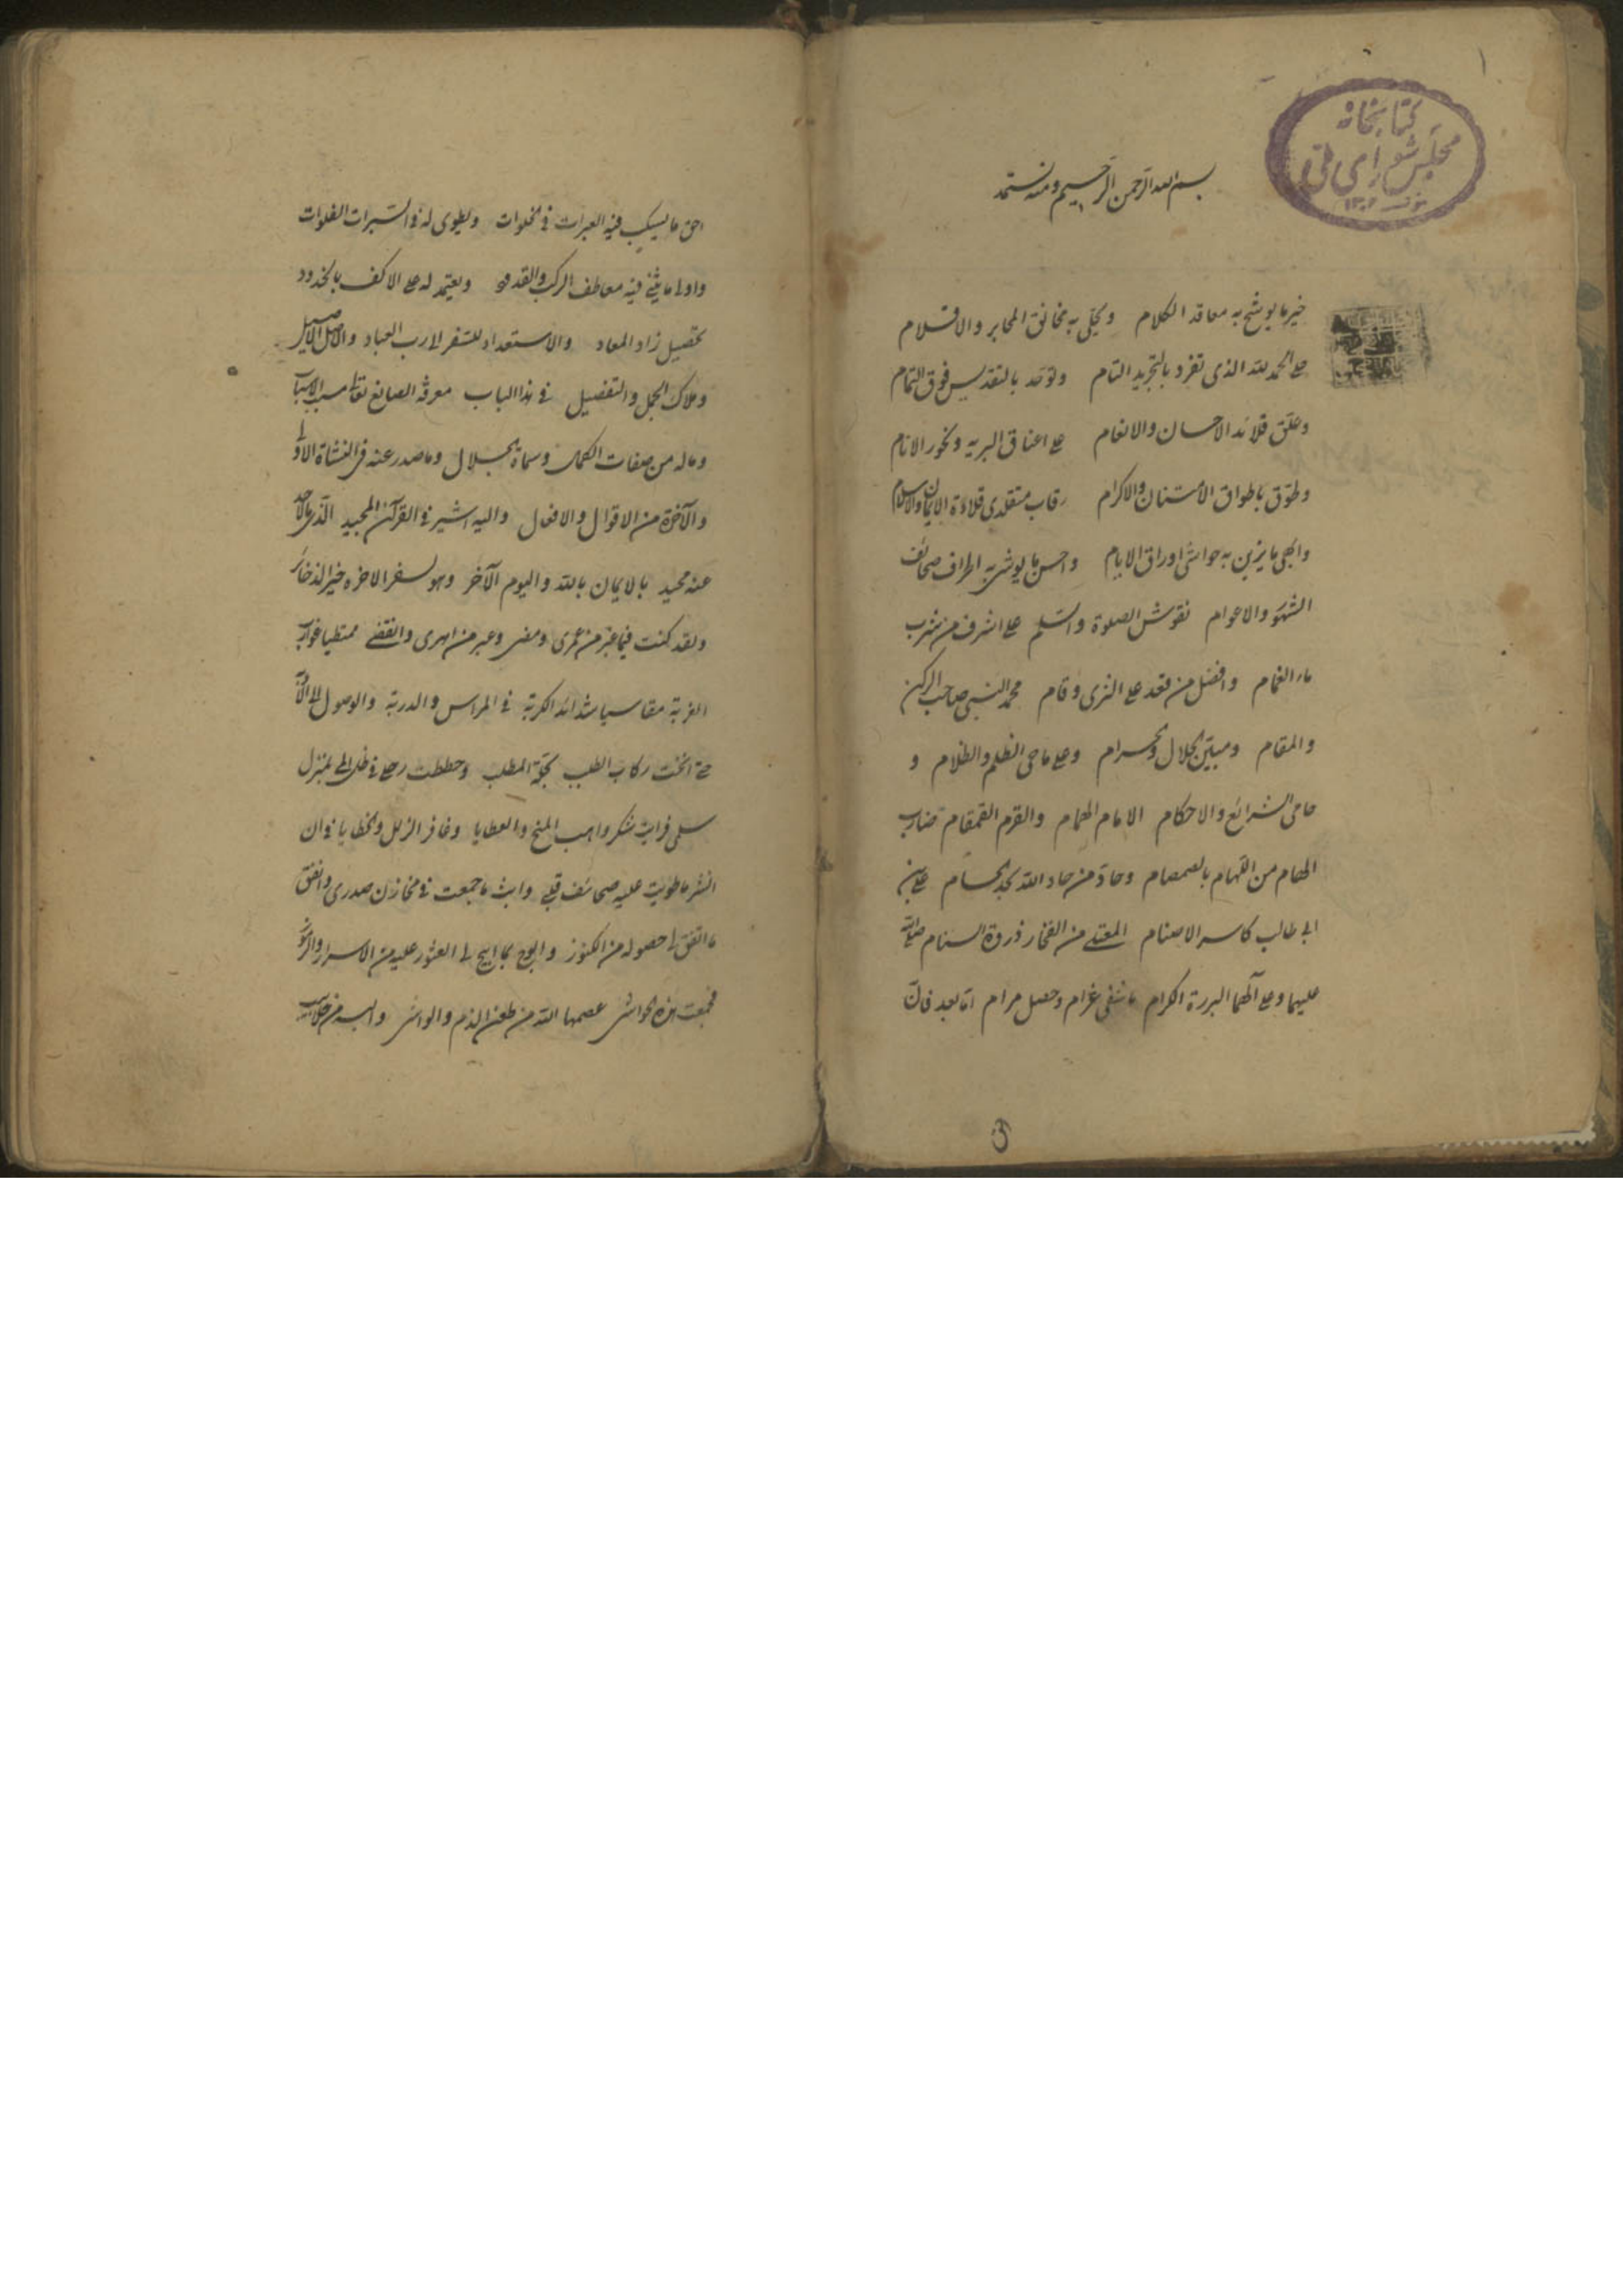 ١
كتابخانه
مجلس شورای ملی
١٣٠٢
بسم الله الرحمن الرحيم ومنه نستمد
خير ما يوشح به معاقد الكلام ويحلى به مخانق المحابر والاقلام
على الحمد لله الذى تفرد بالتجريد التام وتوحد بالتقديس فوق التمام
وعلق قلائد الاحسان والانعام على اعناق البريه ونحور الانام
وطوق باطواق الامتنان والاكرام رقاب متقلدى قلادة الايمان والاسلام
وابهى ما يزين به حواشى اوراق الايام واحسن ما يوشى به اطراف صحائف
الشهور والاعوام نقوش الصلوة والسلم على اشرف من شرب
ماء الغمام وافضل من قعد على الثرى وقام محمد النبى صاحب الركن
والمقام ومبين الحلال والحرام وعلى ماحى الظلم والظلام و
حامى الشرائع والاحكام الامام الهمام والقرم القمقام ضارب
الهام من اللهام بالصمصام وحاد من حاد الله بحد الحسام على بن
ابى طالب كاسر الاصنام المعتلى من الفخار ذروة السنام صلى الله
عليهما وعلى آلهما البررة الكرام ما شفى غرام وحصل مرام اما بعد فان
احق ما يسكب فيه العبرات فى الخلوات ويطوى له فى السبرات الفلوات
واولى ما يثنى فيه معاطف الركب والقدود ويعتمد له على الاكف بالخدود
تحصيل زاد المعاد والاستعداد للسفر الى رب العباد والاصل الاصيل
وملاك الجمل والتفصيل فى هذا الباب معرفة الصانع تعالى مسبب الاسباب
وما له من صفات الكمال وسمات الجلال وما صدر عنه فى النشاة الاولى
والآخرة من الاقوال والافعال واليه اشير فى القرآن المجيد الذى ما لاحد
عنه محيد بالايمان بالله واليوم الآخر وهو لسفر الاخره خير الذخائر
ولقد كنت فيما غبر من عمرى ومضى وعبر من امرى وانقضى ممتطيا غوارب
الغربة مقاسيا شدائد الكربة فى المراس والدربة والوصول الى
حتى انخت ركاب الطلب بحجة المطلب وحططت رحلى فى ظل المى بمنزل
سلمى فرايت شكر واهب المنح والعطايا وغافر الزلل والخطايا فى ان
انشر ما طويت عليه صحائف قلبى وابث ما جمعت فى مخازن صدرى وانفق
ما اتفق لى حصوله من الكنوز وابوح بما ابيح لى العثور عليه من الاسرار والرموز
فجمعت هذه الحواشى عصمها الله من طعن الذم والواشى